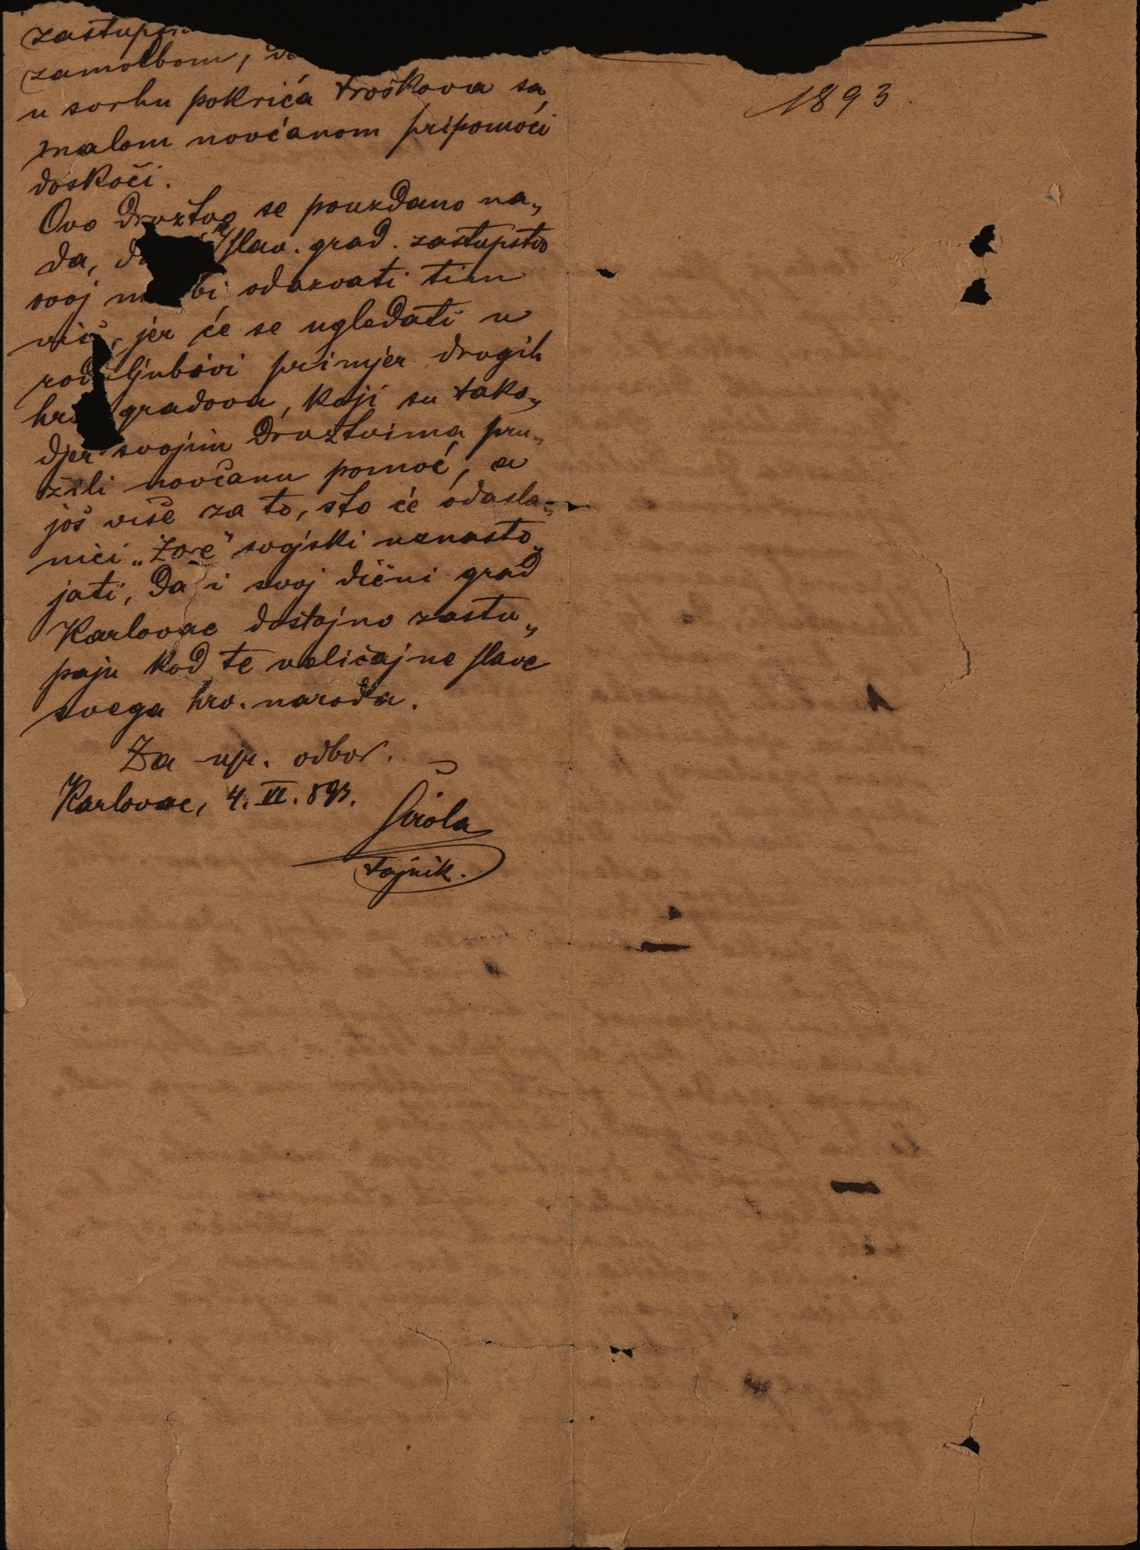 zastupst
zamolbom, da
u svrhu pokrića troškova sa
malom novčanom pripomoći
doskoči.
Ovo družtvo se pouzdano na„
da, da Slav. grad. zastupstvo
svoj m bi odazvati tim
više, jer će se ugledati u
rodoljubivi primjer drugih
hrv. gradova, koji su tako„
djer svojim družtvima pru„
žili novčanu pomoć, a
još više za to, što će odasla„
nici „Zore" svojski uznasto„
jati, da i svoj dični grad
Karlovac dostojno zastu„
paju kod te veličajne slave
svega hrv. naroda.
Za upr. odbor.
Karlovac, 4. VI. 893.
Širola
tajnik.
1893.